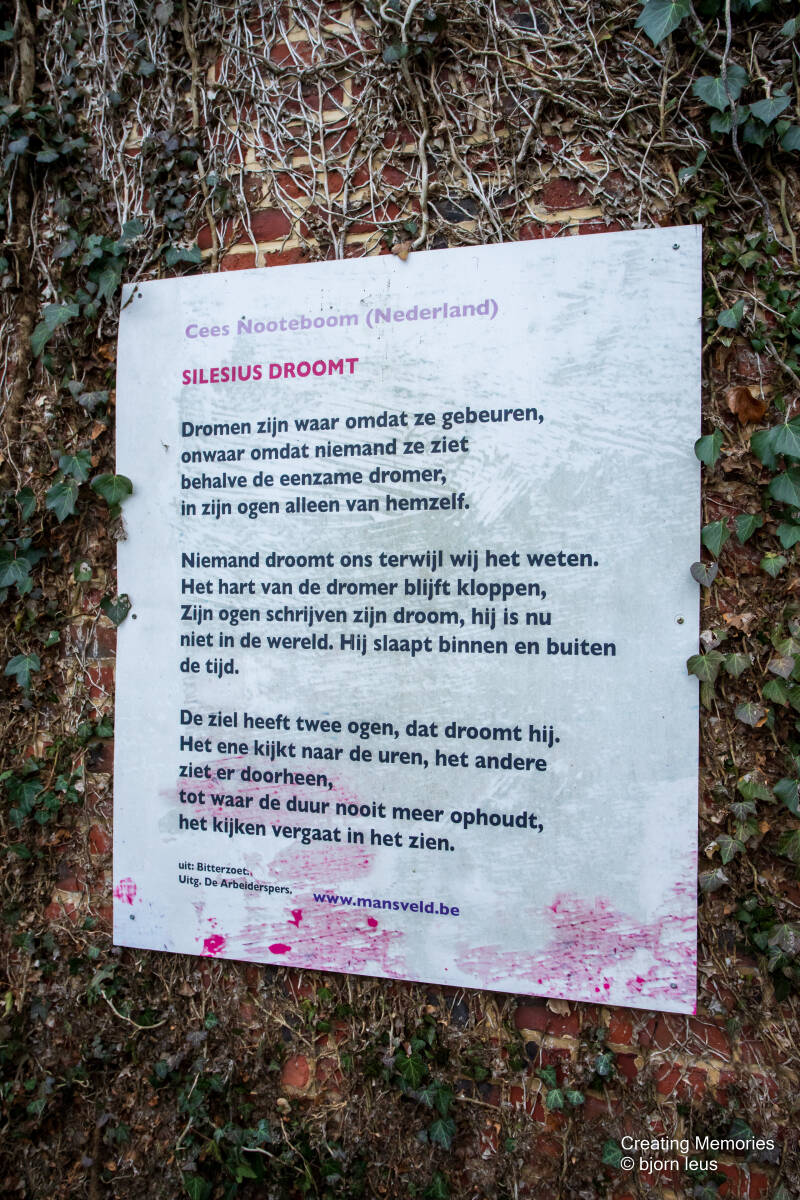 Cees Nooteboom (Nederland)
SILESIUS DROOMT
Dromen zijn waar omdat ze gebeuren,
onwaar omdat niemand ze ziet
behalve de eenzame dromer,
in zijn ogen alleen van hemzelf.
Niemand droomt ons terwijl wij het weten.
Het hart van de dromer blijft kloppen,
Zijn ogen schrijven zijn droom, hij is nu
niet in de wereld. Hij slaapt binnen en buiten
de tijd.
De ziel heeft twee ogen, dat droomt hij.
Het ene kijkt naar de uren, het andere
ziet er doorheen,
tot waar de duur nooit meer ophoudt,
het kijken vergaat in het zien.
uit: Bitterzoet.
Uitg. De Arbeiderspers.
www.mansveld.be
Creating Memories
© bjorn leus